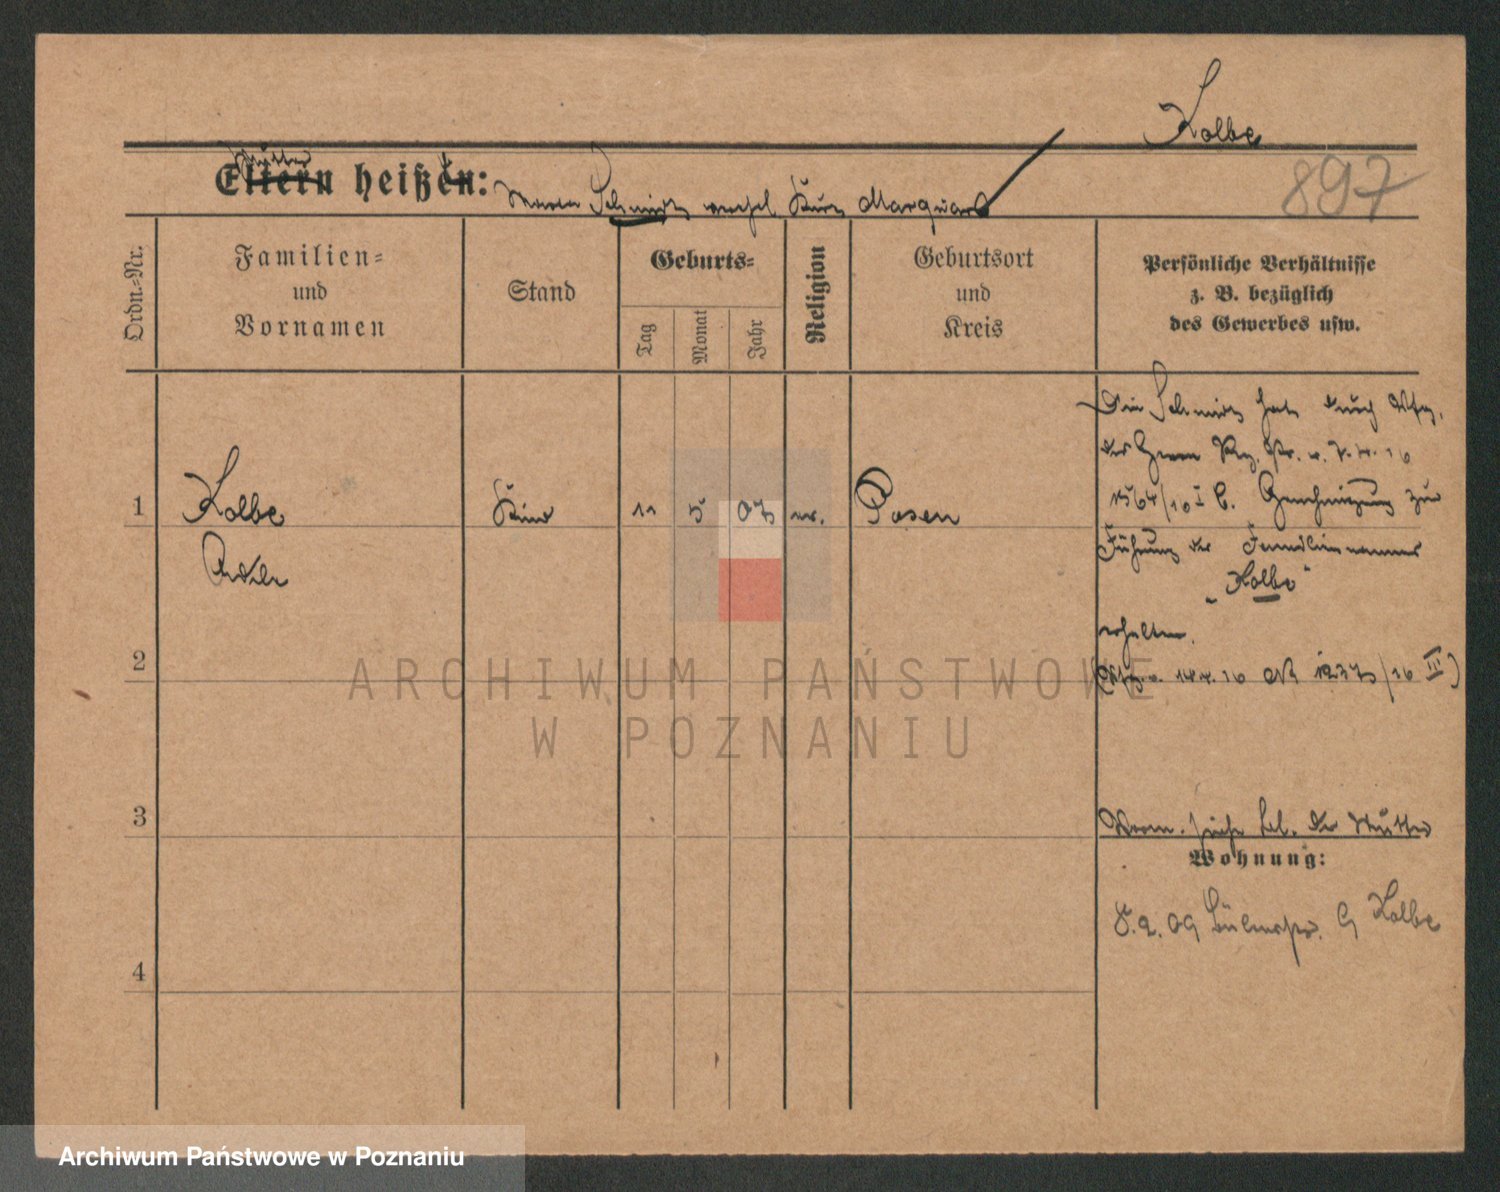 Kolbe
897
Mutter
Eltern heißen: Schmidt Marquard
Ordn.-Nr.
Familien=
und
Vornamen
Stand
Geburts=
Tag
Monat
Jahr
Religion
Geburtsort
und
Kreis
Persönliche Verhältnisse
z. B. bezüglich
des Gewerbes usw.
1
Kolbe
Kind
11
5
07
ev.
Posen
Adele
Die Schmidt hat durch Vfg.
des Herrn Reg. Pr. v.
Genehmigung zur
Führung des Familiennamens
„Kolbe“
erhalten.
2
3
der Mutter
Wohnung:
8.2.09 Kolbe
4
ARCHIWUM PAŃSTWOWE
W POZNANIU
Archiwum Państwowe w Poznaniu